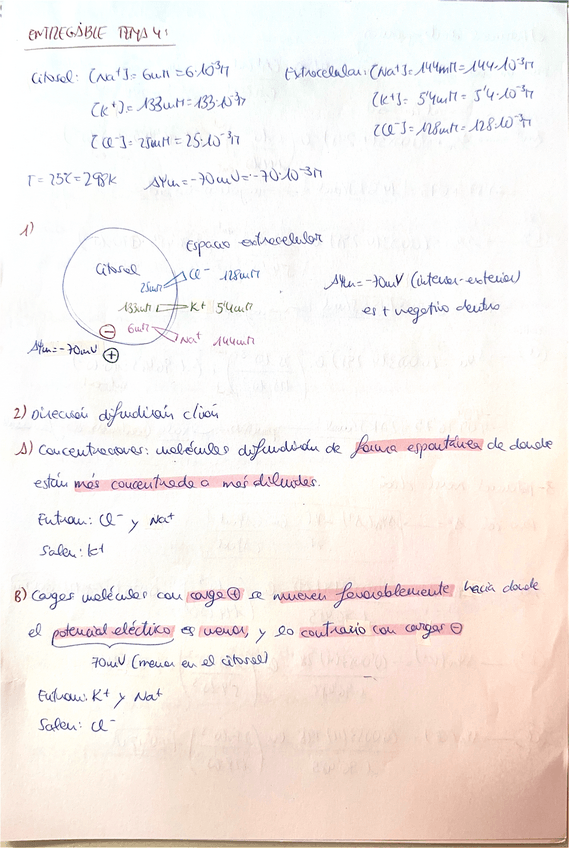 ENTREGABLE TEMA 4:
Citosol: [Na⁺]= 6mM = 6·10⁻³M
Extracelular: [Na⁺]= 144mM = 144·10⁻³M
[K⁺]= 133mM = 133·10⁻³M
[K⁺]= 5'4mM = 5'4·10⁻³M
[Cl⁻]= 25mM = 25·10⁻³M
[Cl⁻]= 128mM = 128·10⁻³M
T = 25ºC = 298K ΔΨm = -70mV = -70·10⁻³M
1)
Espacio extracelular
Citosol
25mM Cl⁻ 128mM
133mM K⁺ 5'4mM
6mM Na⁺ 144mM
⊖
ΔΨm = -70mV ⊕
ΔΨm = -70mV (interior-exterior)
es + negativo dentro
2) Dirección difundirán c/ion
A) Concentraciones: moléculas difundirán de forma espontánea de donde
están más concentrado a más diluidas.
Entran: Cl⁻ y Na⁺
Salen: K⁺
B) Cargas moléculas con carga ⊕ se mueven favorablemente hacia donde
el potencial eléctrico es menor, y lo contrario con cargas ⊖
70mV (menor en el citosol)
Entran: K⁺ y Na⁺
Salen: Cl⁻